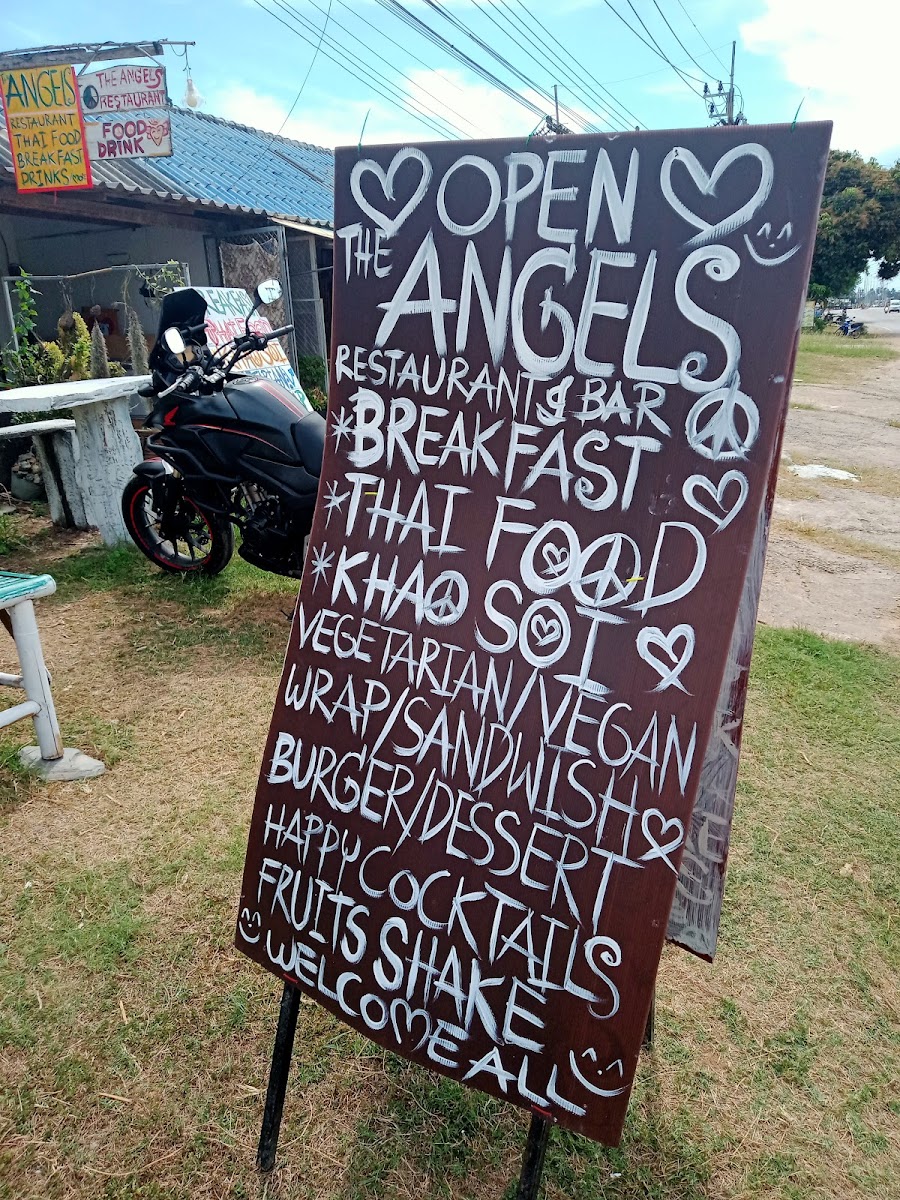 ANGELS
RESTAURANT
THAI FOOD
BREAKFAST
DRINKS
THE ANGELS
RESTAURANT
FOOD
DRINK
OPEN
THE ANGELS
RESTAURANT & BAR
*BREAKFAST
*THAI FOOD
*KHAO SOI
VEGETARIAN/VEGAN
WRAP/SANDWISH
BURGER/DESSERT
HAPPY COCKTAILS
FRUITS SHAKE
WELCOME ALL